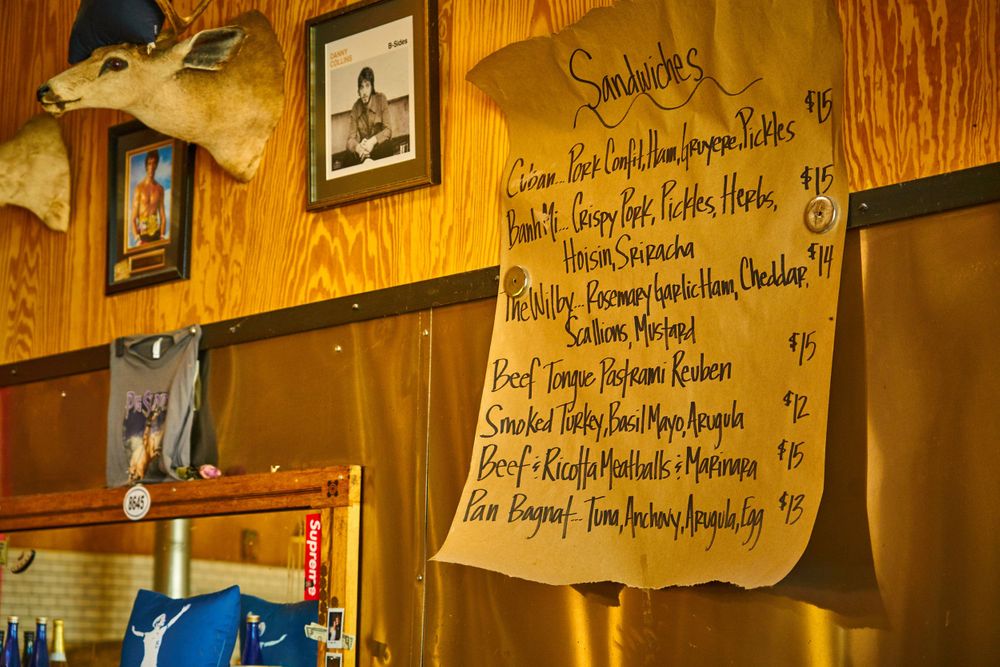 DANNY
COLLINS
B-Sides
Sandwiches
Cuban... Pork Confit, Ham, Gruyere, Pickles $15
Banh Mi... Crispy Pork, Pickles, Herbs, $15
Hoisin, Sriracha
The Wilby... Rosemary Garlic Ham, Cheddar, $14
Scallions, Mustard
Beef Tongue Pastrami Reuben $15
Smoked Turkey, Basil Mayo, Arugula $12
Beef & Ricotta Meatballs & Marinara $15
Pan Bagnat... Tuna, Anchovy, Arugula, Egg $13
8645
Supreme